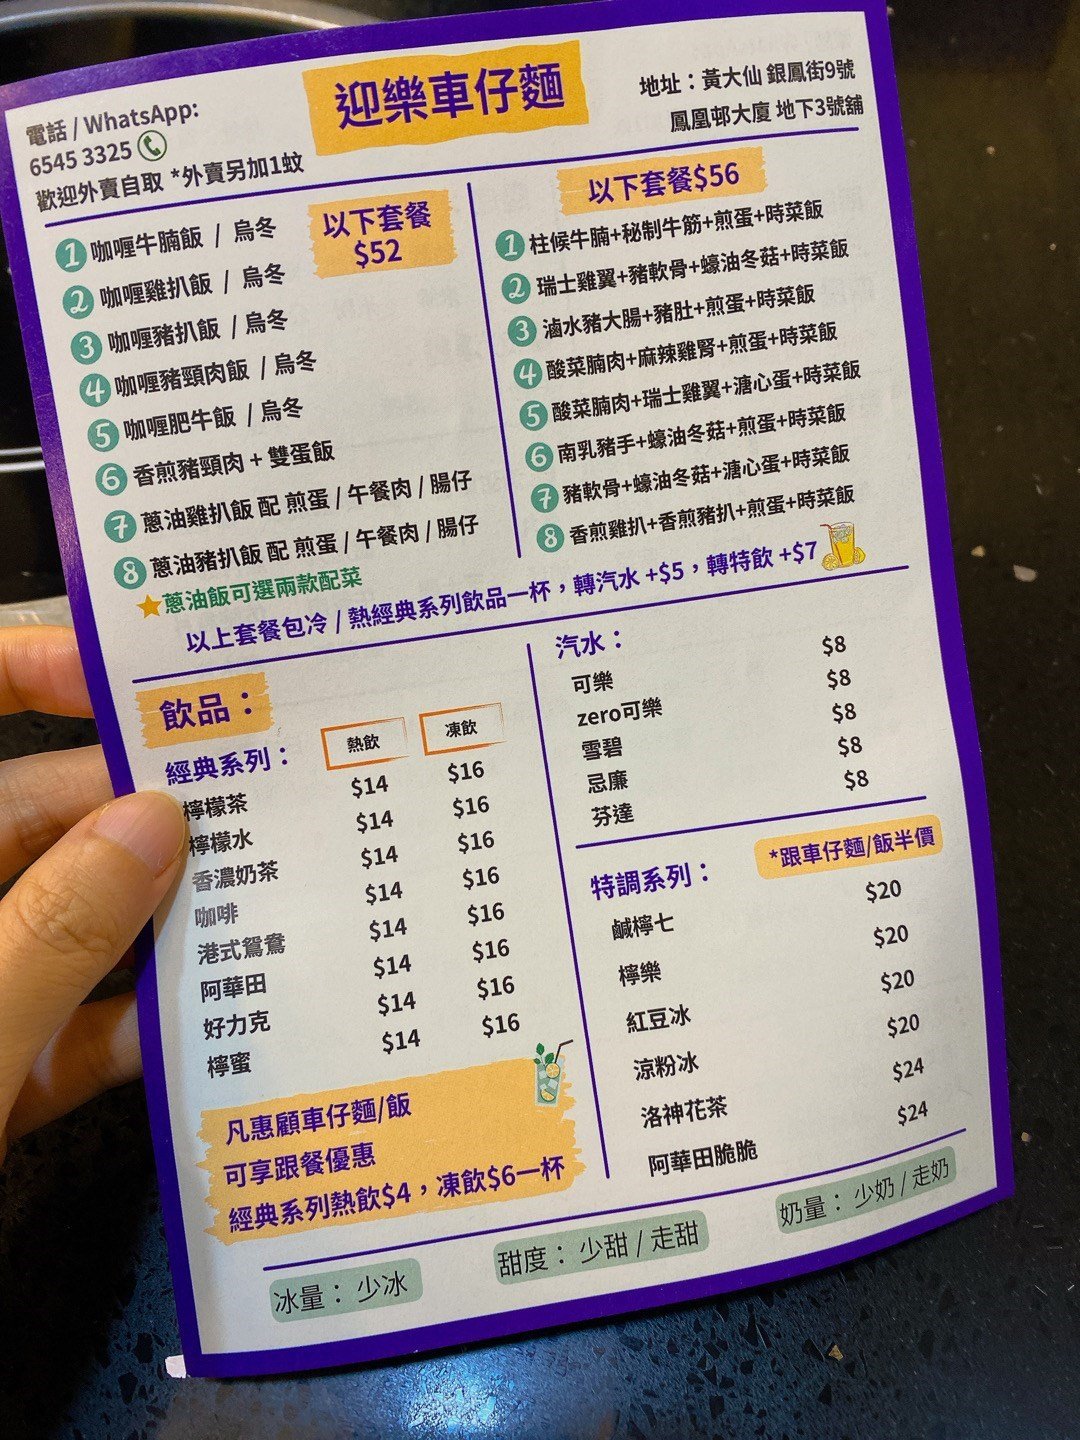 迎樂車仔麵
電話 / WhatsApp:
6545 3325
歡迎外賣自取 *外賣另加1蚊
地址：黃大仙 銀鳳街9號
鳳凰邨大廈 地下3號舖
以下套餐
$52
1 咖喱牛腩飯 / 烏冬
2 咖喱雞扒飯 / 烏冬
3 咖喱豬扒飯 / 烏冬
4 咖喱豬頸肉飯 / 烏冬
5 咖喱肥牛飯 / 烏冬
6 香煎豬頸肉 + 雙蛋飯
7 蔥油雞扒飯 配 煎蛋 / 午餐肉 / 腸仔
8 蔥油豬扒飯 配 煎蛋 / 午餐肉 / 腸仔
蔥油飯可選兩款配菜
以下套餐$56
1 柱候牛腩+秘制牛筋+煎蛋+時菜飯
2 瑞士雞翼+豬軟骨+蠔油冬菇+時菜飯
3 滷水豬大腸+豬肚+煎蛋+時菜飯
4 酸菜腩肉+麻辣雞腎+煎蛋+時菜飯
5 酸菜腩肉+瑞士雞翼+溏心蛋+時菜飯
6 南乳豬手+蠔油冬菇+煎蛋+時菜飯
7 豬軟骨+蠔油冬菇+溏心蛋+時菜飯
8 香煎雞扒+香煎豬扒+煎蛋+時菜飯
以上套餐包冷 / 熱經典系列飲品一杯，轉汽水 +$5，轉特飲 +$7
飲品：
經典系列： 熱飲 凍飲
檸檬茶 $14 $16
檸檬水 $14 $16
香濃奶茶 $14 $16
咖啡 $14 $16
港式鴛鴦 $14 $16
阿華田 $14 $16
好力克 $14 $16
檸蜜 $14 $16
凡惠顧車仔麵/飯
可享跟餐優惠
經典系列熱飲$4，凍飲$6一杯
汽水：
可樂 $8
zero可樂 $8
雪碧 $8
忌廉 $8
芬達 $8
特調系列： *跟車仔麵/飯半價
鹹檸七 $20
檸樂 $20
紅豆冰 $20
涼粉冰 $20
洛神花茶 $24
阿華田脆脆 $24
冰量： 少冰
甜度： 少甜 / 走甜
奶量： 少奶 / 走奶